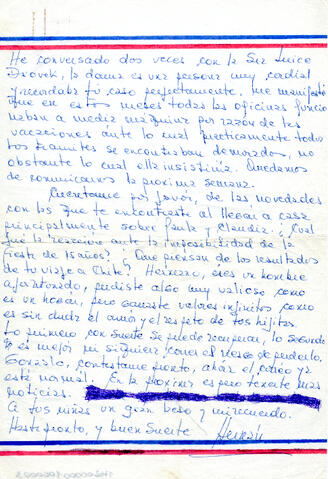 He conversado dos veces con la Sra Suica
Drovek, la dama es una persona muy cordial
y recordaba tú caso perfectamente, me manifestó
que en estos meses todas las oficinas funcio
naban a media máquina por razón de las
vacaciones ante lo cual prácticamente todos
los trámites se encontraban demorados, no
obstante lo cual ella insistiría. Quedamos
de comunicarnos la próxima semana.
Cuéntame por favor, de las novedades
con las que te encontraste al llegar a casa
principalmente sobre Paula y Claudia. ¿Cuál
fue la reacción ante la imposibilidad de la
fiesta de 15 años? ¿Que piensan de los resultados
de tu viaje a Chile? Hermano, eres un hombre
afortunado, perdiste algo muy valioso como
es un hogar, pero ganaste valores infinitos como
es sin duda el amor y el respeto de tus hijitas.
Lo primero con suerte se puede recuperar, lo segundo
es mejor ni siquiera correr el riesgo de perderlo.
Gonzalo, contéstame pronto, ahora el correo ya
está normal. En la próxima espero tenerte más
noticias.
A tus niñas un gran beso y mi recuerdo.
Hasta pronto, y buena suerte